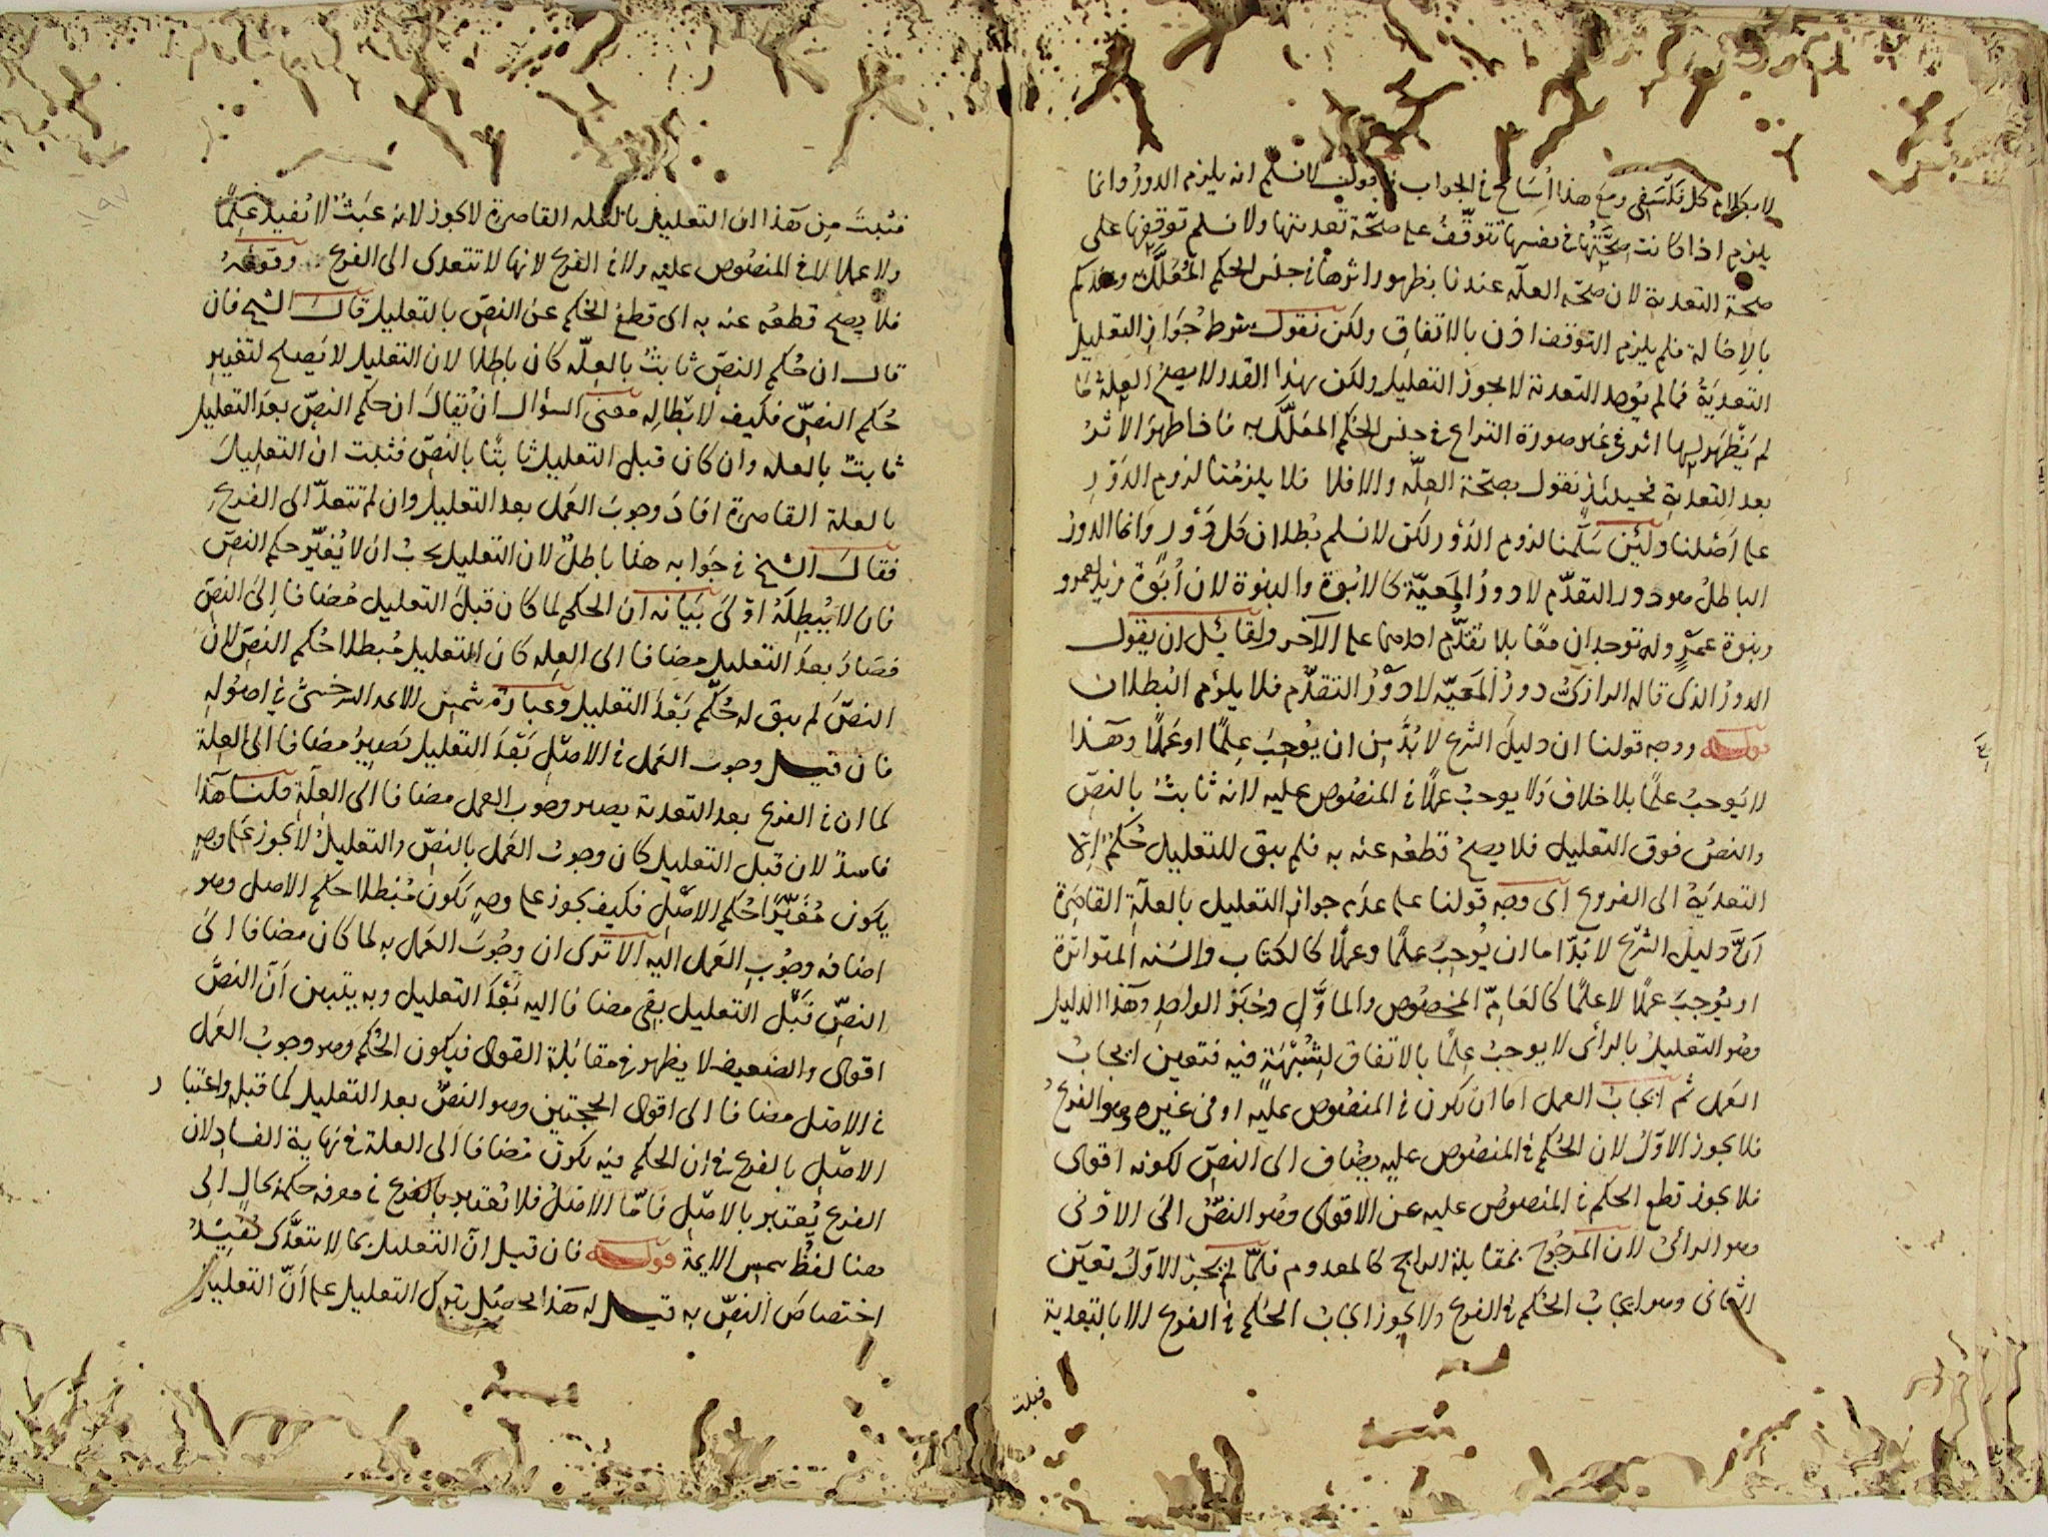 لا بكلام كل فلسفي ومع هذا اسامح في الجواب فنقول لا نسلم انه يلزم الدور وانما
يلزم اذا كانت صحتها في نفسها تتوقف على صحة تعديتها ولا نسلم توقفها على
صحة التعدية لان صحة العلة عندنا بظهور اثرها في جنس الحكم المعلل وعندكم
بالاخالة فلم يلزم التوقف اذن بالاتفاق ولكن نقول شرط جواز التعليل
التعدية فما لم يوجد التعدية لا يجوز التعليل ولكن بهذا القدر لا يصح العلة ما
لم يظهر لها اثر في غير صورة النزاع في جنس الحكم المعلل به فاذا ظهر الاثر
بعد التعدية فحينئذ نقول بصحة العلة والا فلا فلا يلزمنا لزوم الدور
على اصلنا ولئن سلمنا لزوم الدور لكن لا نسلم بطلان كل دور وانما الدور
الباطل هو دور التقدم لا دور المعية كالابوة والبنوة لان ابوة زيد لعمرو
وبنوة عمرو له توجدان معا بلا تقدم احدهما على الآخر ولقائل ان يقول
الدور الذي قاله الرازي دور المعية لا دور التقدم فلا يلزم البطلان
قوله ووجه قولنا ان دليل الشرع لا بد من ان يوجب علما او عملا وهذا
لا يوجب علما بلا خلاف ولا يوجب عملا في المنصوص عليه لانه ثابت بالنص
والنص فوق التعليل فلا يصح قطعه عنه به فلم يبق للتعليل حكم الا
التعدية الى الفروع اى وجه قولنا على عدم جواز التعليل بالعلة القاصرة
ان دليل الشرع لا بد اما ان يوجب علما وعملا كالكتاب والسنة المتواترة
او يوجب عملا لا علما كالعام المخصوص والماول وخبر الواحد وهذا الدليل
وهو التعليل بالرأى لا يوجب علما بالاتفاق لشبهة فيه فتعين ايجاب
العمل ثم ايجاب العمل اما ان يكون في المنصوص عليه او في غيره وهو الفرع
فلا يجوز الاول لان الحكم في المنصوص عليه يضاف الى النص لكونه اقوى
فلا يجوز قطع الحكم في المنصوص عليه عن الاقوى وهو النص الى الادنى
وهو الرأى لان المرجوح بمقابلة الراجح كالمعدوم فلما لم يجز الاول تعين
الثانى وهو ايجاب الحكم في الفرع ولا يجوز ايجاب الحكم في الفرع الا بالتعدية
فثبت
فثبت من هذا ان التعليل بالعلة القاصرة لا يجوز لانه عبث لا يفيد علما
ولا عملا لا في المنصوص عليه ولا في الفرع لانها لا تتعدى الى الفرع وقوله
فلا يصح قطعه عنه به اى قطع الحكم عن النص بالتعليل قال الشيخ فان
قال ان حكم النص ثابت بالعلة كان باطلا لان التعليل لا يصلح لتغيير
حكم النص فكيف لابطاله معنى السؤال ان يقال ان حكم النص بعد التعليل
ثابت بالعلة وان كان قبل التعليل ثابتا بالنص فثبت ان التعليل
بالعلة القاصرة افاد وجوب العمل بعد التعليل وان لم تتعد الى الفرع
فقال الشيخ في جوابه هذا باطل لان التعليل يجب ان لا يغير حكم النص
فان لا يبطله اولى بيانه ان الحكم لما كان قبل التعليل مضافا الى النص
فصار بعد التعليل مضافا الى العلة كان التعليل مبطلا حكم النص لان
النص لم يبق له حكم بعد التعليل وعبارة شمس الائمة السرخسى في اصوله
فان قيل وجوب العمل في الاصل بعد التعليل يصير مضافا الى العلة
كما ان في الفرع بعد التعدية يصير وجوب العمل مضافا الى العلة قلنا هذا
فاسد لان قبل التعليل كان وجوب العمل بالنص والتعليل لا يجوز على وجه
يكون مغيرا حكم الاصل فكيف يجوز على وجه يكون مبطلا حكم الاصل وهو
اضافة وجوب العمل اليه الا ترى ان وجوب العمل به لما كان مضافا الى
النص قبل التعليل بقى مضافا اليه بعد التعليل وبه يتبين ان النص
اقوى والضعيف لا يظهر في مقابلة القوى فيكون الحكم وهو وجوب العمل
في الاصل مضافا الى اقوى الحجتين وهو النص بعد التعليل كما قبله واعتبار
الاصل بالفرع في ان الحكم فيه يكون مضافا الى العلة في نهاية الفساد لان
الفرع يعتبر بالاصل فاما الاصل فلا يعتبر بالفرع في معرفة حكمه بحال الى
هنا لفظ شمس الايمة قوله فان قيل ان التعليل بما لا يتعدى يفيد
اختصاص النص به قيل له هذا يحصل بترك التعليل على ان التعليل